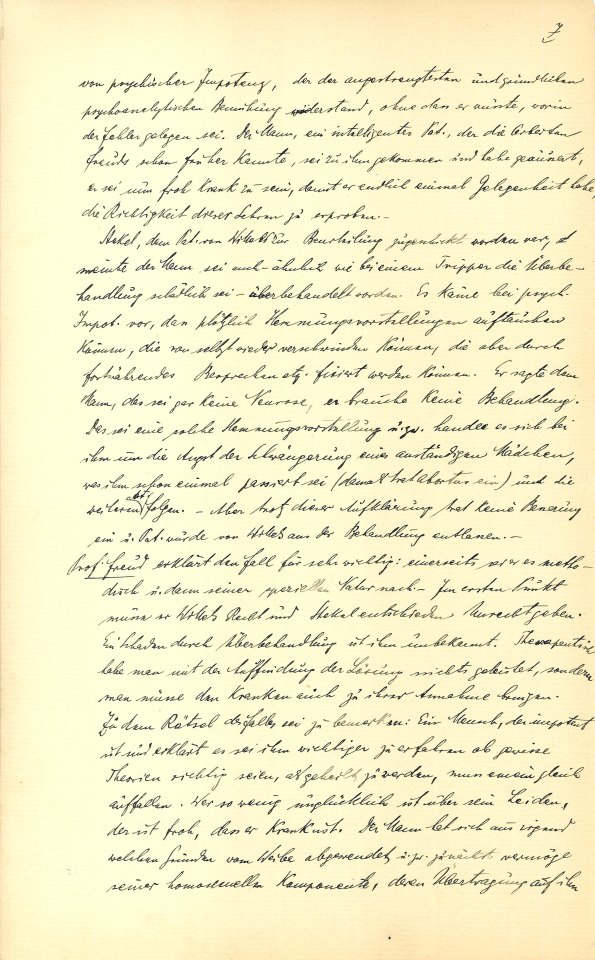 7
von psychischer Impotenz, der der angestrengtesten und gründlichen
psychoanalytischen Bemühung widerstand, ohne dass er wüsste, worin
der Fehler gelegen sei. Der Mann, ein intelligenter Pat., der die Arbeiten
Freuds schon früher kannte, sei zu ihm gekommen und habe geäussert,
er sei nun froh krank zu sein, damit er endlich einmal Gelegenheit habe,
die Richtigkeit dieser Lehren zu erproben.-
Stekel, dem Pat. von Wittels zur Beurteilung zugeschickt worden war,
meinte der Mann sei auch - ähnlich wie bei einem Tripper die Überbe-
handlung schädlich sei - überbehandelt worden. Es käme bei psych.
Impot. vor, dass plötzlich Hemmungsvorstellungen auftauchen
können, die von selbst wieder verschwinden können, die aber durch
fortwährendes Besprechen etz. fixiert werden können. Er sagte dem
Mann, das sei gar keine Neurose, er brauche keine Behandlung.
Das sei eine solche Hemmungsvorstellung u. zw. handle es sich bei
ihm um die Angst der Schwängerung eines anständigen Mädchens,
was ihm schon einmal passiert sei (damals trat Abortus ein) und die
weiteren Folgen. - Aber trotz dieser Aufklärung trat keine Besserung
ein u. Pat. wurde von Wittels aus der Behandlung entlassen.-
Prof. Freud erklärt den Fall für sehr wichtig: einerseits sei er es metho-
disch u. dann seiner speziellen Natur nach.- Im ersten Punkt
müsse er Wittels Recht und Stekel entschieden Unrecht geben.
Ein Schaden durch Überbehandlung ist ihm unbekannt. Therapeutisch
habe man mit der Auffindung der Lösung nichts geleistet, sondern
man müsse den Kranken auch zu ihrer Annahme bringen.
Zu dem Rätsel des Falles sei zu bemerken: Ein Mensch, der impotent
ist und erklärt es sei ihm wichtiger zu erfahren ob gewisse
Theorien richtig seien, als geheilt zu werden, muss einem gleich
auffallen. Wer so wenig unglücklich ist über sein Leiden,
der ist froh, dass er krank ist. Der Mann hat sich aus irgend
welchen Gründen vom Weibe abgewendet u. zw. zunächst vermöge
seiner homosexuellen Komponente, deren Übertragung auf ihn